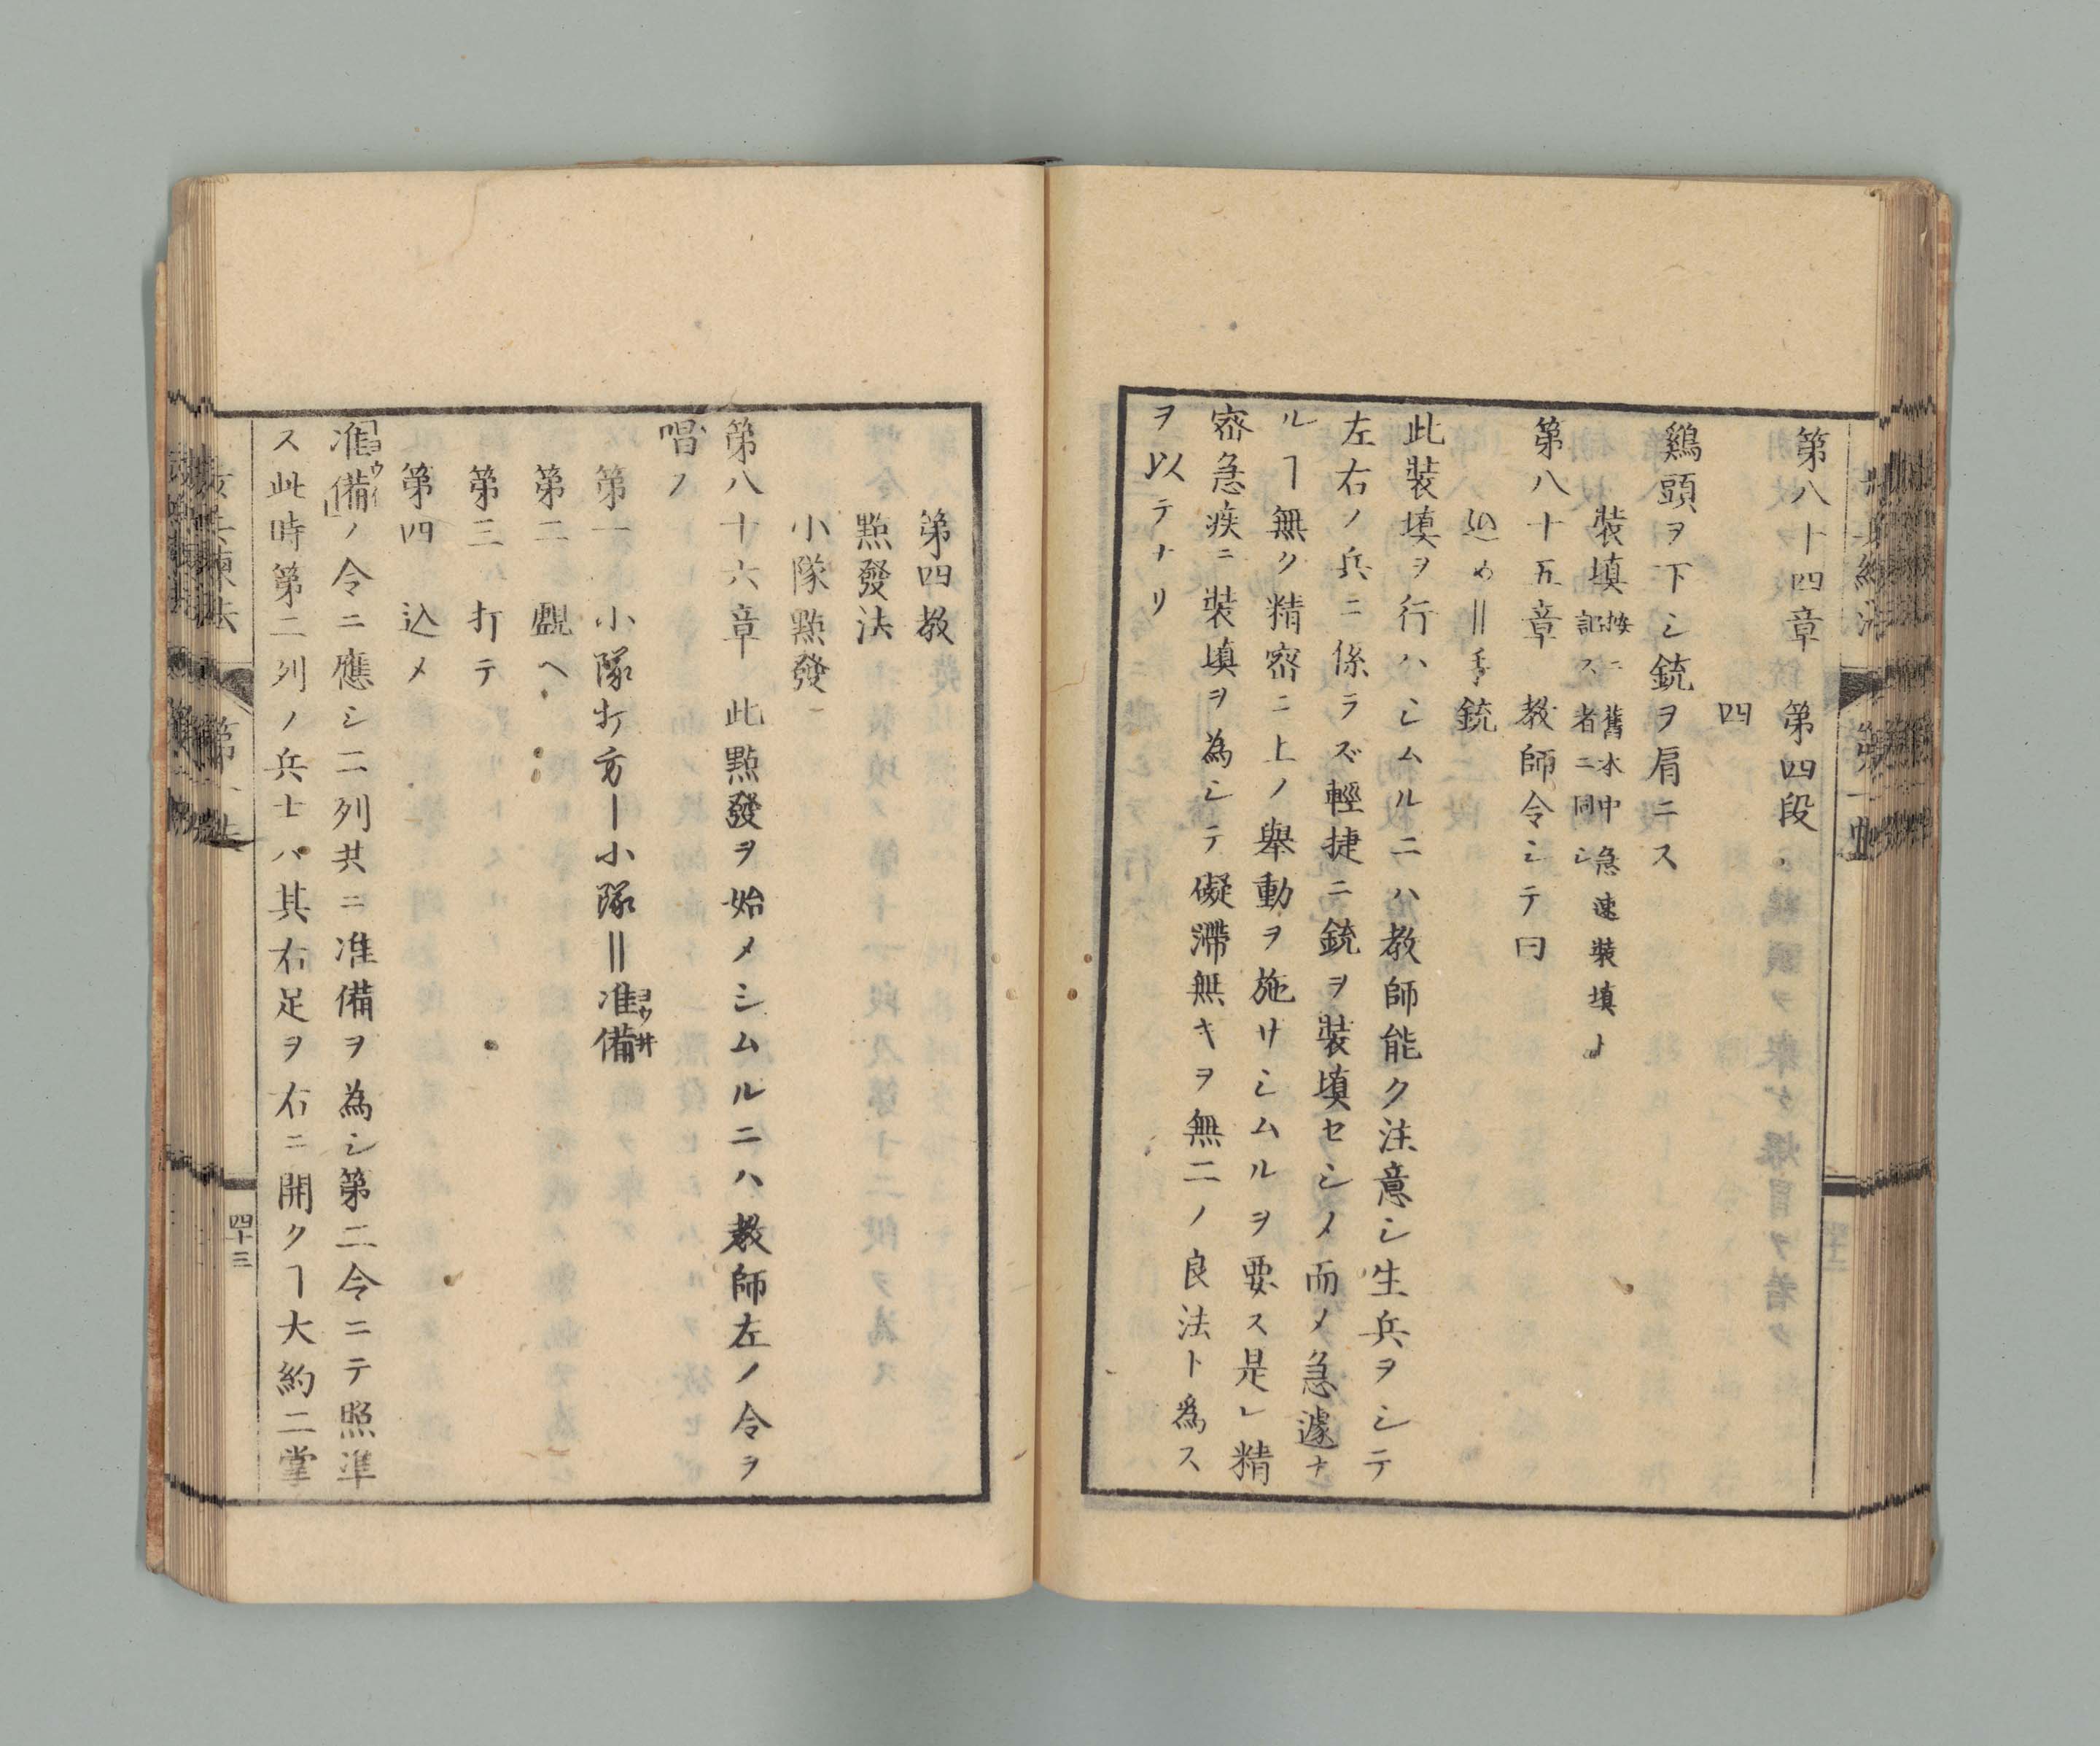 第八十四章　第四段
四
鷄頭ヲ下シ銃ヲ肩ニス
裝填按ニ舊本中急速裝填ト記スル者ニ同シ
第八十五章　教師令シテ曰
込め‖手銃
此裝填ヲ行ハシムルニハ教師能ク注意シ生兵ヲシテ
左右ノ兵ニ係ラズ輕捷ニ銃ヲ裝填セシメ而メ急遽ナ
ルヿ無ク精密ニ上ノ舉動ヲ施サシムルヲ要ス是レ精
密急疾ニ裝填ヲ為シテ礙滯無キヲ無二ノ良法ト爲ス
ヲ以テナリ
第四教
點發法
小隊點發
第八十六章　此點發ヲ始メシムルニハ教師左ノ令ヲ
唱フ
第一　小隊打方ー小隊‖准備ヨウ井
第二　覷ヘ
第三　打テ
第四　込メ
准備ヨウイノ令ニ應シ二列共ニ准備ヲ為シ第二令ニテ照準
ス此時第二列ノ兵士ハ其右足ヲ右ニ開クヿ大約二掌
四十三